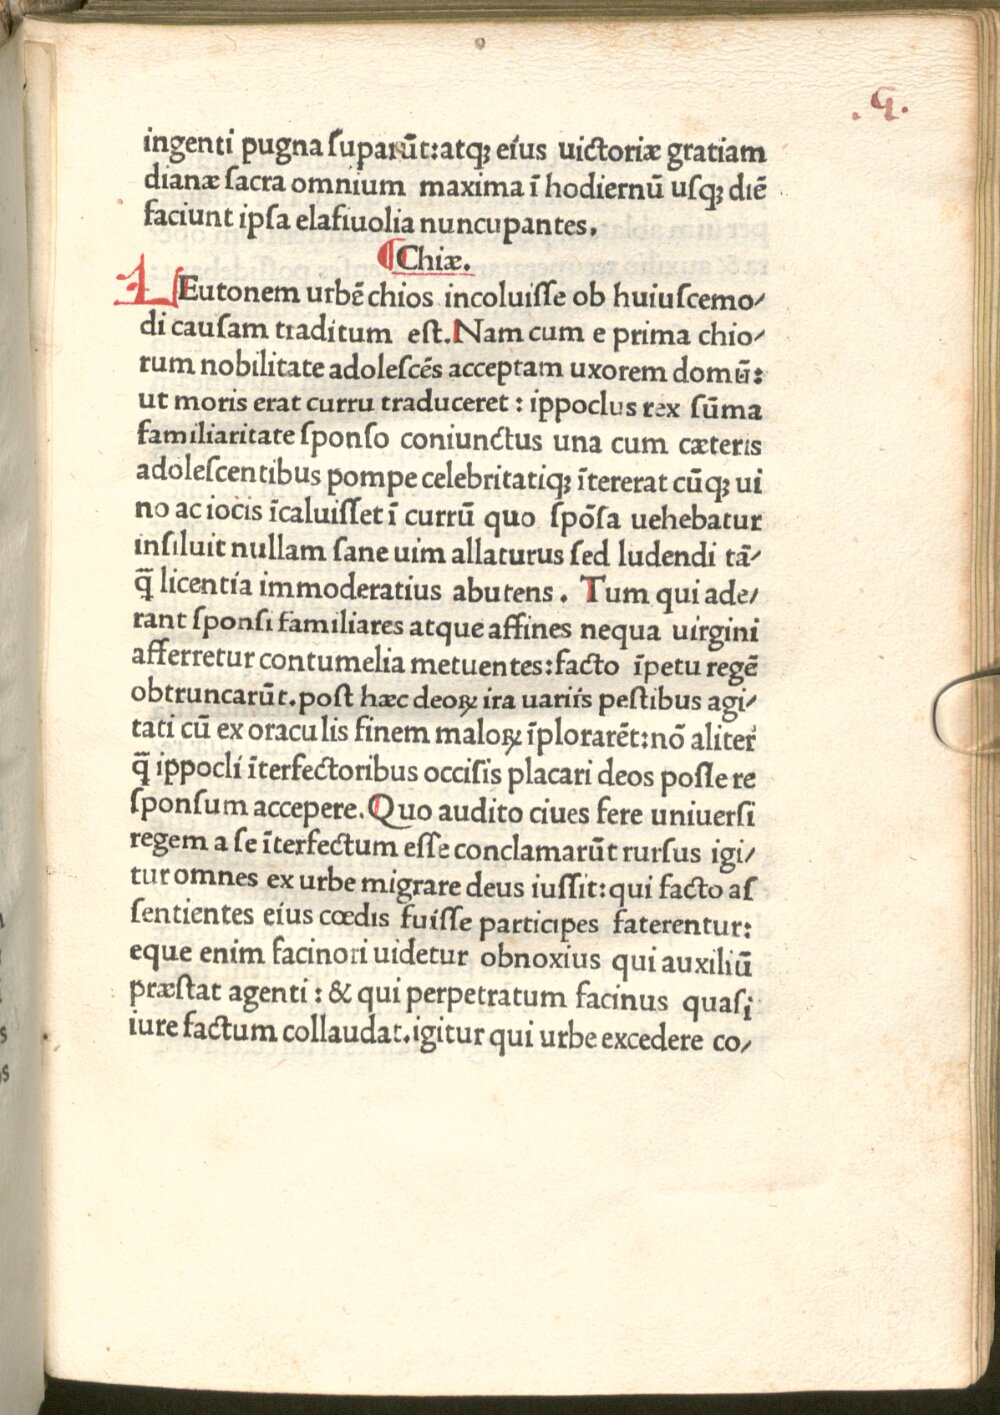 .G.
ingenti pugna ſuparūt:atqꝫ eius uictoriæ gratiam
dianæ ſacra omnium maxima ī hodiernū uſqꝫ diē
faciunt ipſa elafiuolia nuncupantes.
¶Chiæ.
LEutonem urbē chios incoluiſſe ob huiuſcemo⸗
di cauſam traditum eſt.Nam cum e prima chio⸗
rum nobilitate adoleſcēs acceptam uxorem domū:
ut moris erat curru traduceret : ippoclus rex ſūma
familiaritate ſponſo coniunctus una cum cæteris
adoleſcentibus pompe celebritatiqꝫ ītererat cūqꝫ ui
no ac iocis īcaluiſſet ī currū quo ſpōſa uehebatur
inſiluit nullam ſane uim allaturus ſed ludendi tā⸗
q̄ licentia immoderatius abutens. Tum qui ade⸗
rant ſponſi familiares atque affines nequa uirgini
afferretur contumelia metuentes:facto īpetu regē
obtruncarūt.poſt hæc deoꝝ ira uariis peſtibus agi⸗
tati cū ex oraculis finem maloꝝ īplorarēt:nō aliter
q̄ ippocli īterfectoribus occiſis placari deos poſſe re
ſponſum accepere.Quo audito ciues fere uniuerſi
regem a ſe īterfectum eſſe conclamarūt rurſus igi⸗
tur omnes ex urbe migrare deus iuſſit:qui facto aſ
ſentientes eius cœdis fuiſſe participes faterentur:
eque enim facinori uidetur obnoxius qui auxiliū
præſtat agenti : & qui perpetratum facinus quaſi
iure factum collaudat.igitur qui urbe excedere co⸗